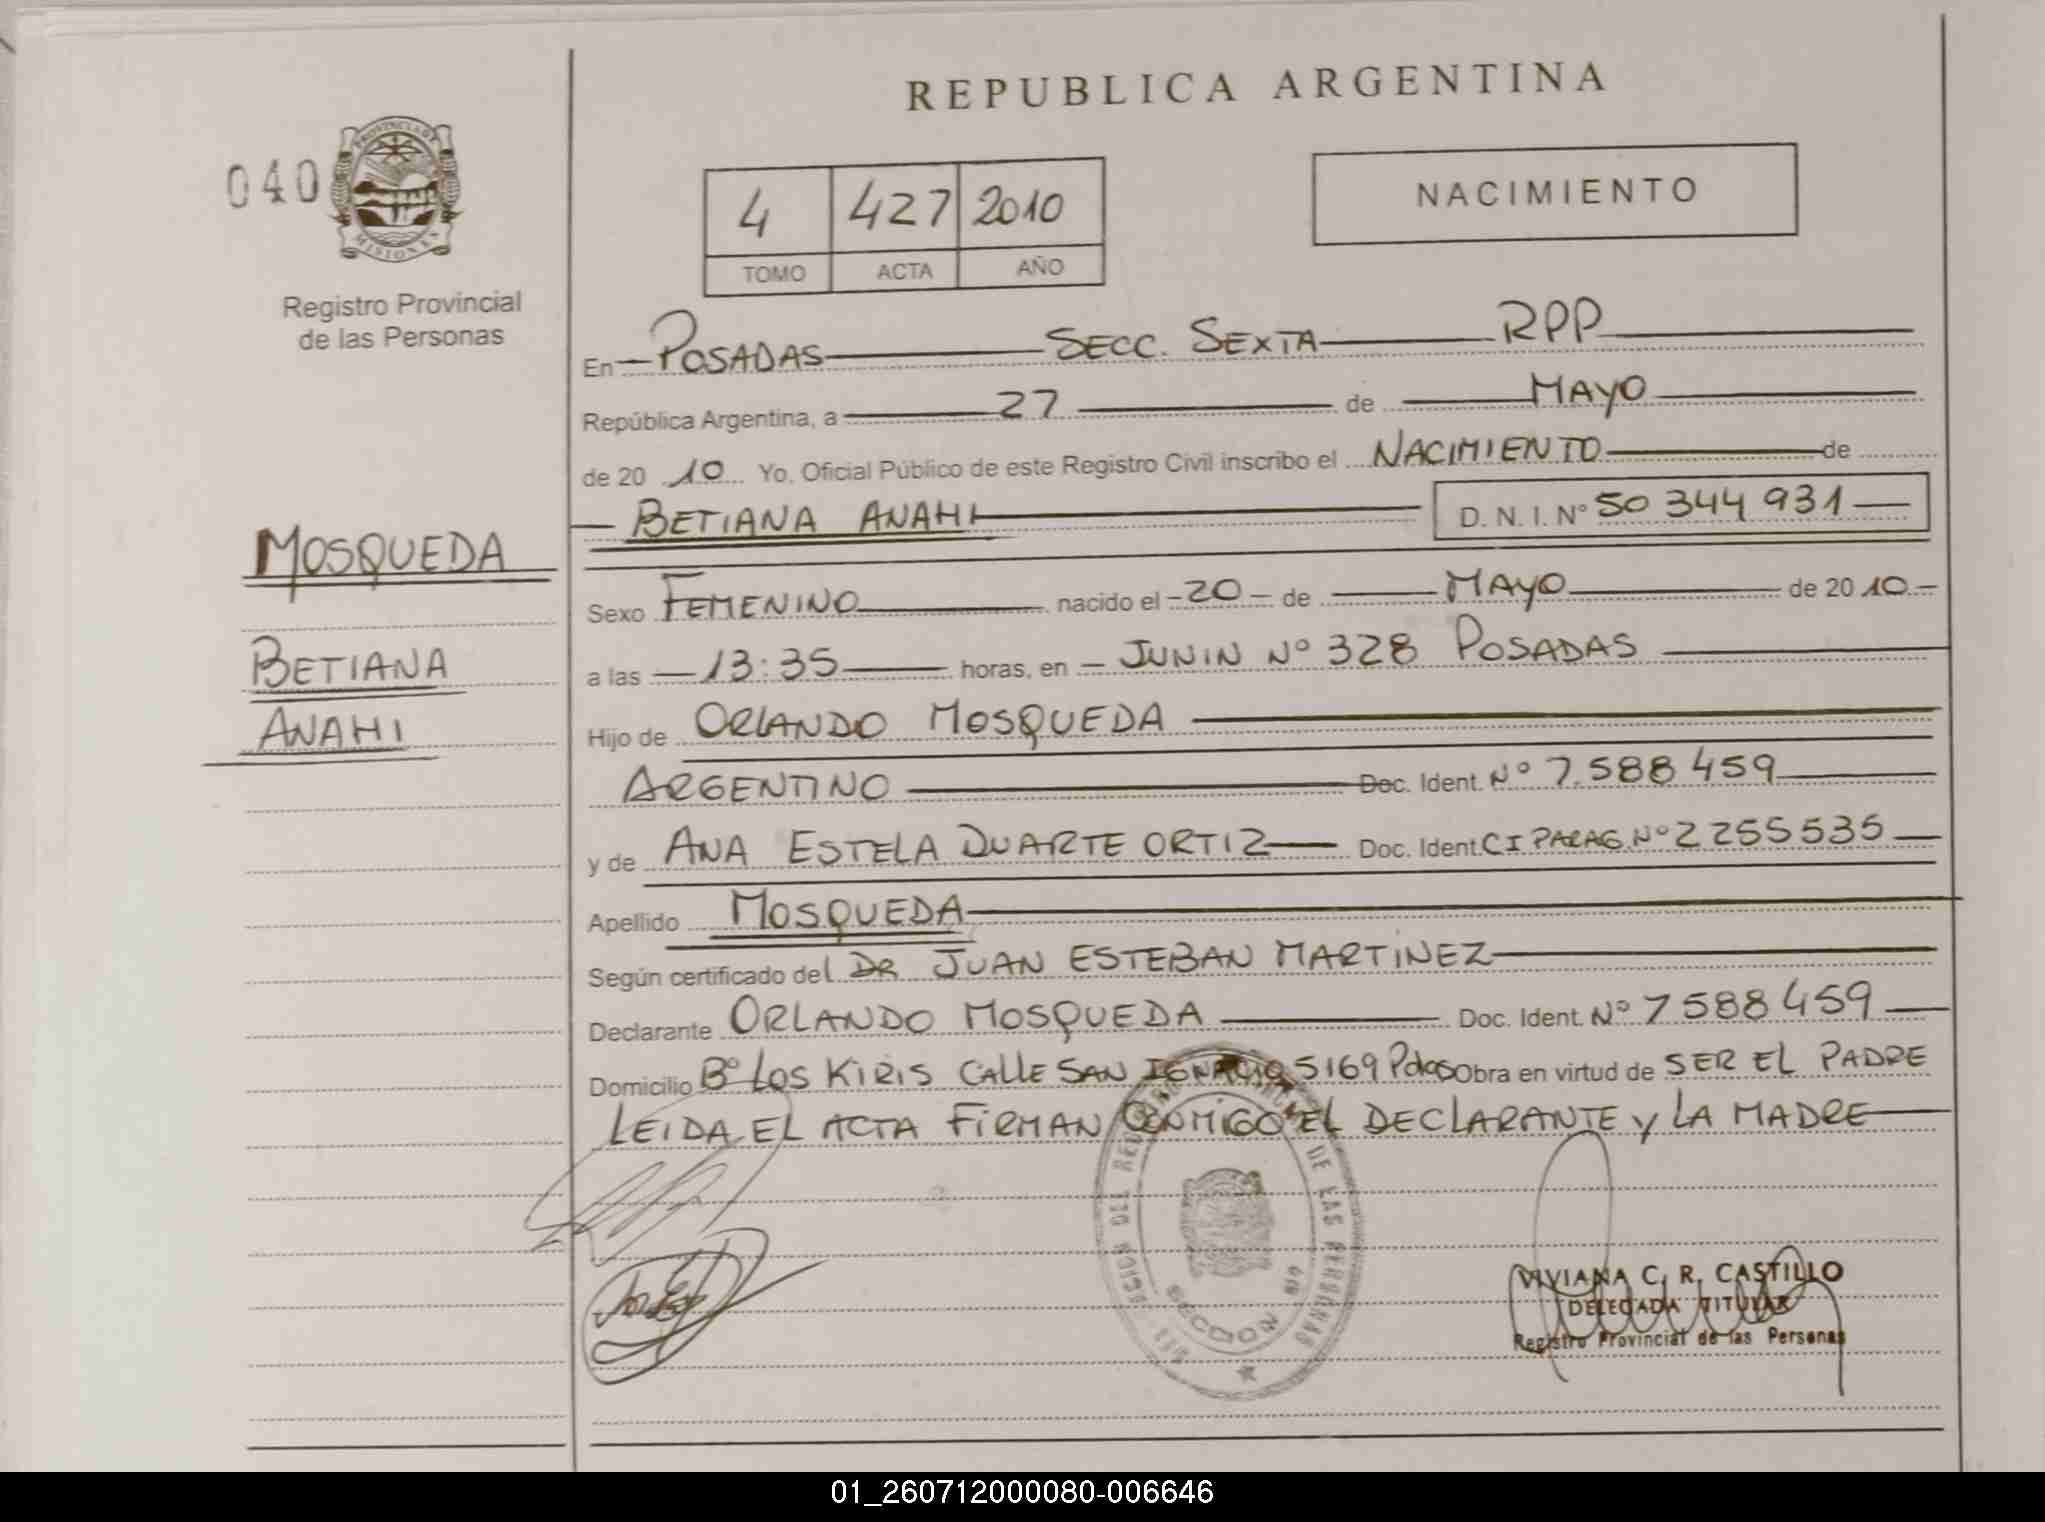 REPUBLICA ARGENTINA
040
PROVINCIA DE
MISIONES
Registro Provincial
de las Personas
4 427 2010
TOMO ACTA AÑO
NACIMIENTO
En POSADAS SECC. SEXTA RPP
República Argentina, a 27 de MAYO
de 20 10 Yo, Oficial Público de este Registro Civil inscribo el NACIMIENTO de
BETIANA ANAHI D.N.I. Nº 50 344 931
MOSQUEDA
BETIANA
ANAHI
Sexo FEMENINO nacido el 20 de MAYO de 20 10
a las 13:35 horas, en JUNIN Nº 328 POSADAS
Hijo de ORLANDO MOSQUEDA
ARGENTINO Doc. Ident. Nº 7.588 459
y de ANA ESTELA DUARTE ORTIZ Doc. Ident. CI PARAG. Nº 2255535
Apellido MOSQUEDA
Según certificado del DR JUAN ESTEBAN MARTINEZ
Declarante ORLANDO MOSQUEDA Doc. Ident. Nº 7 588 459
Domicilio Bº LOS KIRIS CALLE SAN IGNACIO 5169 Pdas Obra en virtud de SER EL PADRE
LEIDA EL ACTA FIRMAN CONMIGO EL DECLARANTE y LA MADRE
DE LAS PERSONAS
SECCION
VIVIANA C. R. CASTILLO
DELEGADA TITULAR
Registro Provincial de las Personas
01_260712000080-006646